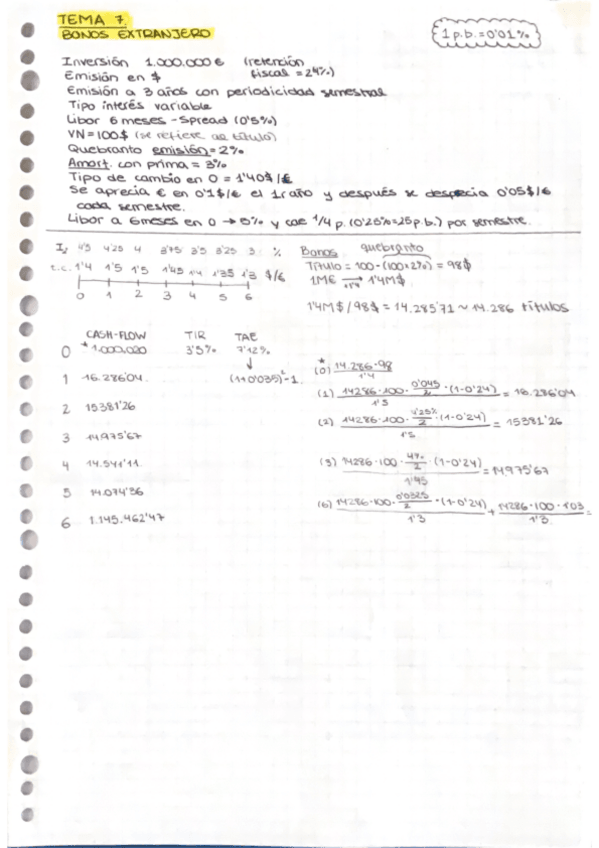 TEMA 7.
BONOS EXTRANJERO
1 p.b. = 0'01%
Inversión 1.000.000 € (retención fiscal = 24%)
Emisión en $
Emisión a 3 años con periodicidad semestral
Tipo interés variable
Libor 6 meses - Spread (0'5%)
VN = 100$ (se refiere al título)
Quebranto emisión = 2%
Amort. con prima = 3%
Tipo de cambio en 0 = 1'40$/€
Se aprecia € en 0'1$/€ el 1r año y después se desprecia 0'05$/€
cada semestre.
Libor a 6 meses en 0 → 5% y cae 1/4 p. (0'25% = 25 p.b.) por semestre.
I, 4'5 4'25 4 3'75 3'5 3'25 3 %
t.c. 1'4 1'5 1'5 1'45 1'4 1'35 1'3 $/€
0 1 2 3 4 5 6
Bonos quebranto
Título = 100 - (100 × 2%) = 98$
1M€ → ×1'4 1'4M$
1'4M$/98$ = 14.285'71 ~ 14.286 títulos
CASH-FLOW TIR TAE
0 * 1.000.020 3'5% 7'12%
(1+0'035)²-1
1 16.286'04
2 15381'26
3 14975'67
4 14.541'11
5 14.074'36
6 1.145.462'47
(0)* 14.286 · 98 / 1'4
(1) 14286 · 100 · 0'045/2 · (1-0'24) / 1'5 = 16.286'04
(2) 14286 · 100 · 4'25%/2 · (1-0'24) / 1'5 = 15381'26
(3) 14286 · 100 · 4%/2 · (1-0'24) / 1'45 = 14975'67
(6) 14286 · 100 · 0'0325/2 · (1-0'24) / 1'3 + 14286 · 100 · 1'03 / 1'3 =